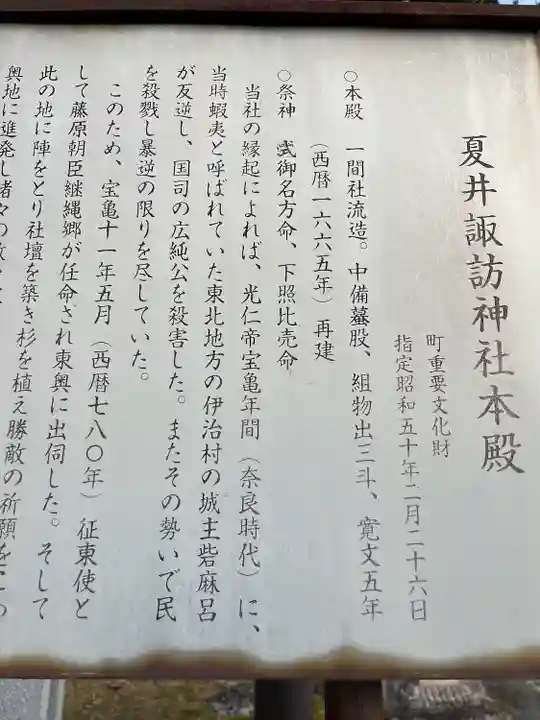 夏井諏訪神社本殿
町重要文化財
指定昭和五十年二月二十六日
○本殿　一間社流造。中備蟇股、組物出三斗、寛文五年
（西暦一六六五年）再建
○祭神　武御名方命、下照比売命
当社の縁起によれば、光仁帝宝亀年間（奈良時代）に、
当時蝦夷と呼ばれていた東北地方の伊治村の城主砦麻呂
が反逆し、国司の広純公を殺害した。またその勢いで民
を殺戮し暴逆の限りを尽していた。
このため、宝亀十一年五月（西暦七八〇年）征東使と
して藤原朝臣継縄郷が任命され東奥に出伺した。そして
此の地に陣をとり社壇を築き杉を植え勝敵の祈願をこめ
奥地に進発し諸々の